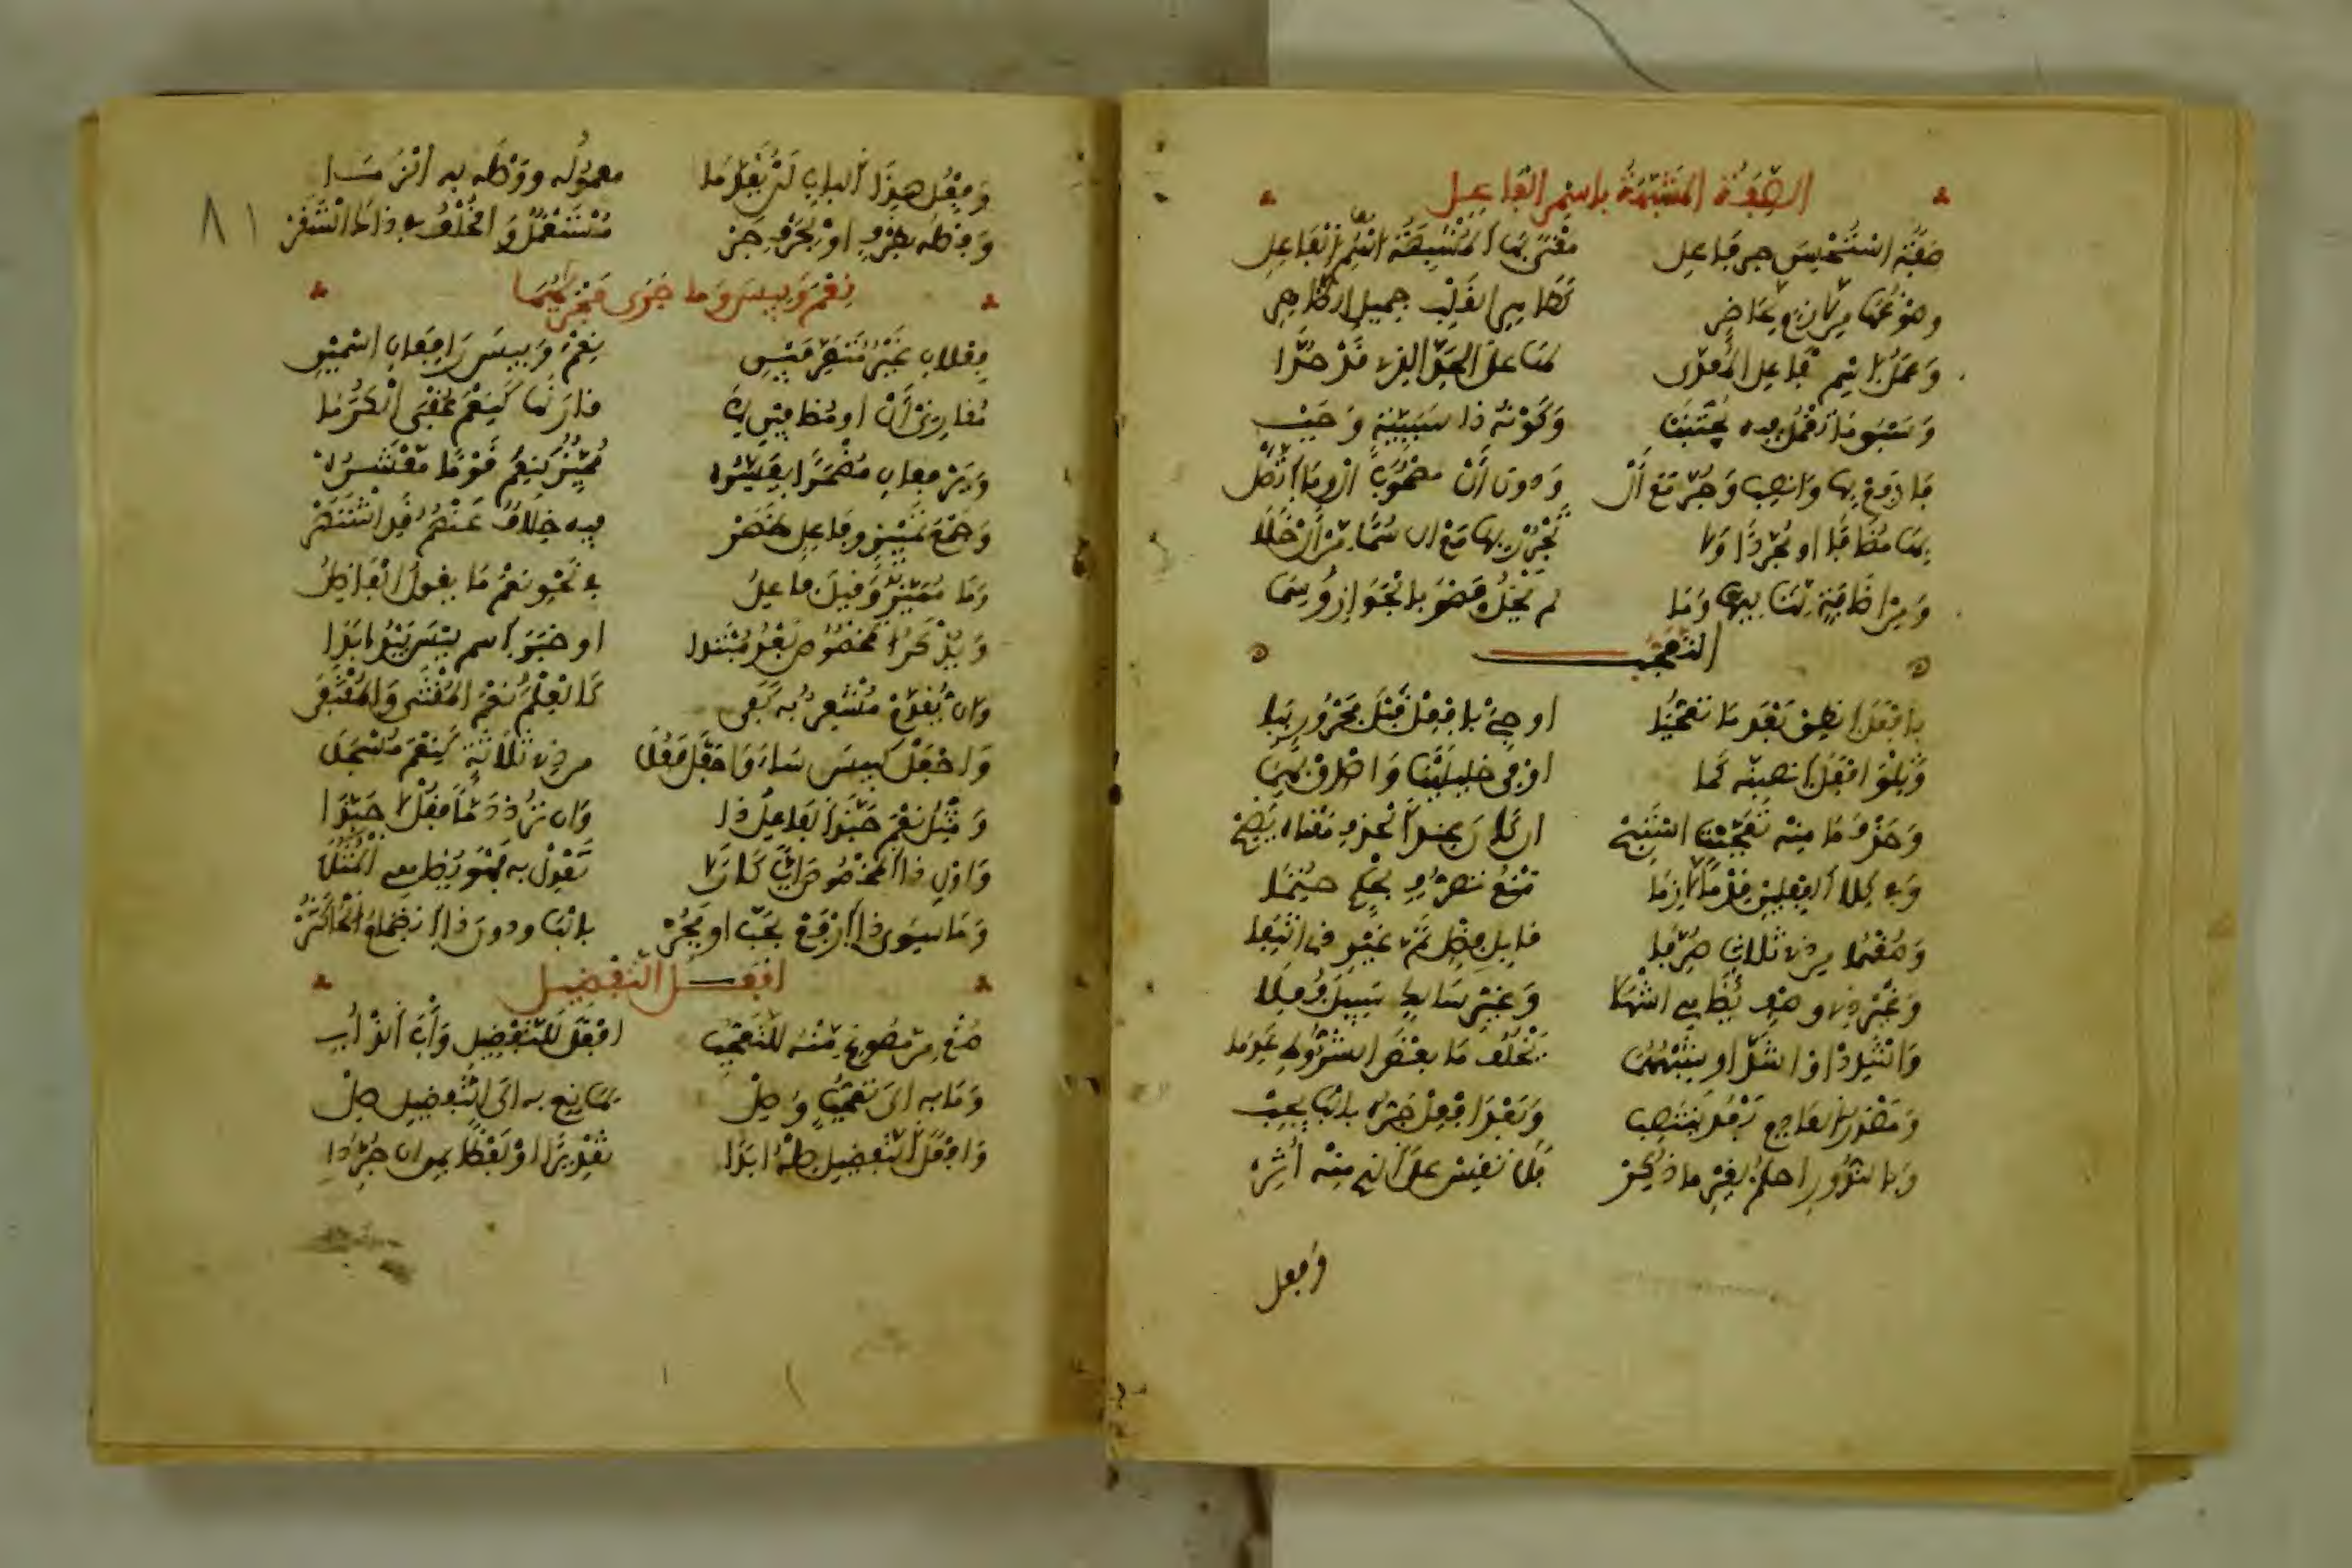 الصفة المشبهة باسم الفاعل
صفة استحسن جر فاعل معنى بها المشبهة اسم الفاعل
وصوغها من لازم لحاضر كطاهر القلب جميل الظاهر
وعمل اسم فاعل المعدى لها على الحد الذي قد حدا
وسبق ما تعمل فيه مجتنب وكونه ذا سببية وجب
فارفع بها وانصب وجر مع أل ودون أل مصحوب أل وما اتصل
بها مضافا أو مجردا ولا تجرر بها مع أل سما من أل خلا
ومن إضافة لتاليها وما لم يخل فهو بالجواز وسما
التعجب
بأفعل انطق بعد ما تعجبا أو جئ بأفعل قبل مجرور ببا
وتلو أفعل انصبنه كما أوفى خليلينا وأصدق بهما
وحذف ما منه تعجبت استبح إن كان عند الحذف معناه يضح
وفي كلا الفعلين قدما لزما منع تصرف بحكم حتما
وصغهما من ذي ثلاث صرفا قابل فضل تم غير ذي انتفا
وغير ذي وصف يضاهي أشهلا وغير سالك سبيل فعلا
وأشدد أو أشد أو شبههما يخلف ما بعض الشروط عدما
ومصدر العادم بعد ينتصب وبعد أفعل جره بالبا يجب
وبالندور احكم لغير ما ذكر فلا تقس على الذي منه أثر
وفعل
وفعل هذا الباب لن يقدما معموله ووصله به الزما
وفصله بظرف أو بحرف جر مستعمل والخلف في ذاك استقر
٨١
نعم وبيس وما جرى مجراهما
فعلان غير متصرفين نعم وبيس رافعان اسمين
مقارني أل أو مضافين لما قارنها كنعم عقبى الكرما
ويرفعان مضمرا يفسره مميز كنعم قوما معشره
وجمع تمييز وفاعل ظهر فيه خلاف عنهم قد اشتهر
وما مميز وقيل فاعل في نحو نعم ما يقول الفاضل
ويذكر المخصوص بعد مبتدا أو خبر اسم ليس يبدو أبدا
وإن يقدم مشعر به كفى كالعلم نعم المقتنى والمقتفى
واجعل كبيس ساء واجعل فعلا من ذي ثلاثة كنعم مسجلا
ومثل نعم حبذا الفاعل ذا وإن ترد ذما فقل لا حبذا
وأول ذا المخصوص أيا كان لا تعدل به فهو يضاهي المثلا
وما سوى ذا ارفع بحب أو فجر بالبا ودون ذا انضمام الحا كثر
أفعل التفضيل
صغ من مصوغ منه للتعجب أفعل للتفضيل وأب اللذ أبي
وما به إلى تعجب وصل لمانع به إلى التفضيل صل
وأفعل التفضيل صله أبدا تقديرا أو لفظا بمن إن جردا